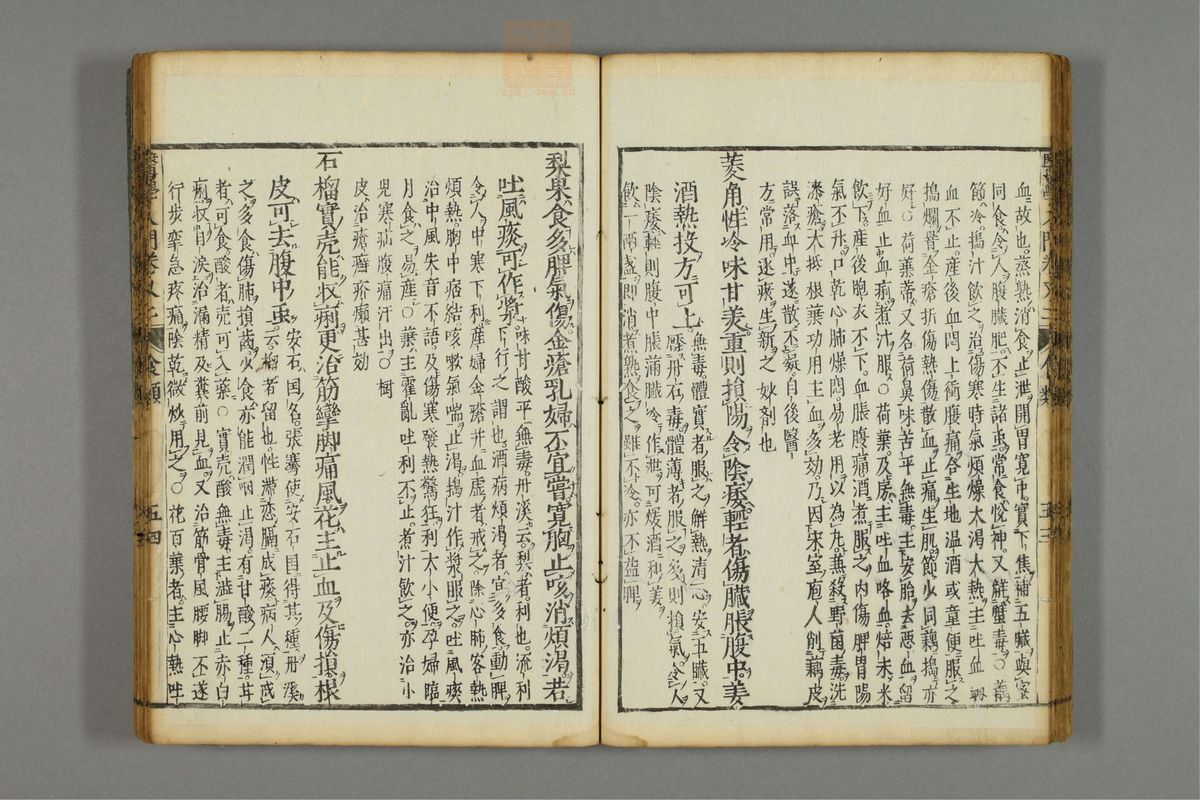 血故也蒸熟消食止泄開胃寬中實下焦補五臟與蜜
同食令人腹臟肥不生諸虫常食悅神又解蟹毒○藕
節冷搗汁飲之治傷寒時氣煩燥大渴大熱主吐血衄
血不止產後血悶上衝腹痛合生地溫酒或童便服之
搗爛罯金瘡折傷熱傷散血止痛生肌節少同藕搗亦
好○荷葉蒂又名荷鼻味苦平無毒主安胎去惡血留
好血止血痢煮汁服○荷葉及房主吐血咯血焙末米
飲下產後胞衣不下血脹腹痛酒煮服之內傷脾胃陽
氣不升口乾心肺燥悶易老用以為丸無殺野菌毒洗
漆瘡大抵根葉功用主血多效乃因宋室庖人削藕皮
誤落血中遂散不凝自後醫
方常用逐瘀生新之妙劑也
菱角性冷味甘美重則損陽令陰痿輕者傷臟脹腹中姜
酒熱投方可上
無毒體實者服之解熱清心安五臟又
壓丹石毒體薄者服之多則損氣令人
陰痿輕則腹中脹滿臟冷作泄可煖酒和姜
飲一兩盞即消煮熟食之雖不冷亦不益脾
醫學入門卷又二 食類 五十三
梨果食多脾氣傷金瘡乳婦不宜嘗寬胸止咳消煩渴若
吐風痰可作漿
味甘酸平無毒丹溪云梨者利也流利
下行之謂也酒病煩渴者宜多食動脾
令人中寒下利產婦金瘡并血虛者戒之除心肺客熱
煩熱胸中痞結咳嗽氣喘止渴搗汁作漿服之吐風痰
治中風失音不語及傷寒發熱驚狂利大小便孕婦臨
月食之易產○葉主霍亂吐利不止煮汁飲之亦治小
兒寒疝腹痛汗出○樹
皮治瘡癬疥癩甚効
石榴實壳能收痢更治筋攣脚痛風花主止血及傷損根
皮可去腹中虫
安石国名張騫使安石国得其種丹溪
云榴者留也性滯恋膈成痰病人須戒
之多食傷肺損齒少食亦能潤咽止渴有甘酸二種甘
者可食酸者壳可入藥○實壳酸無毒主澁腸止赤白
痢收目淚治漏精及糞前見血又治筋骨風腰脚不遂
行步攣急疼痛除乾微炒用之○花百葉者主心熱吐
醫學入門卷又二 食類 五十四